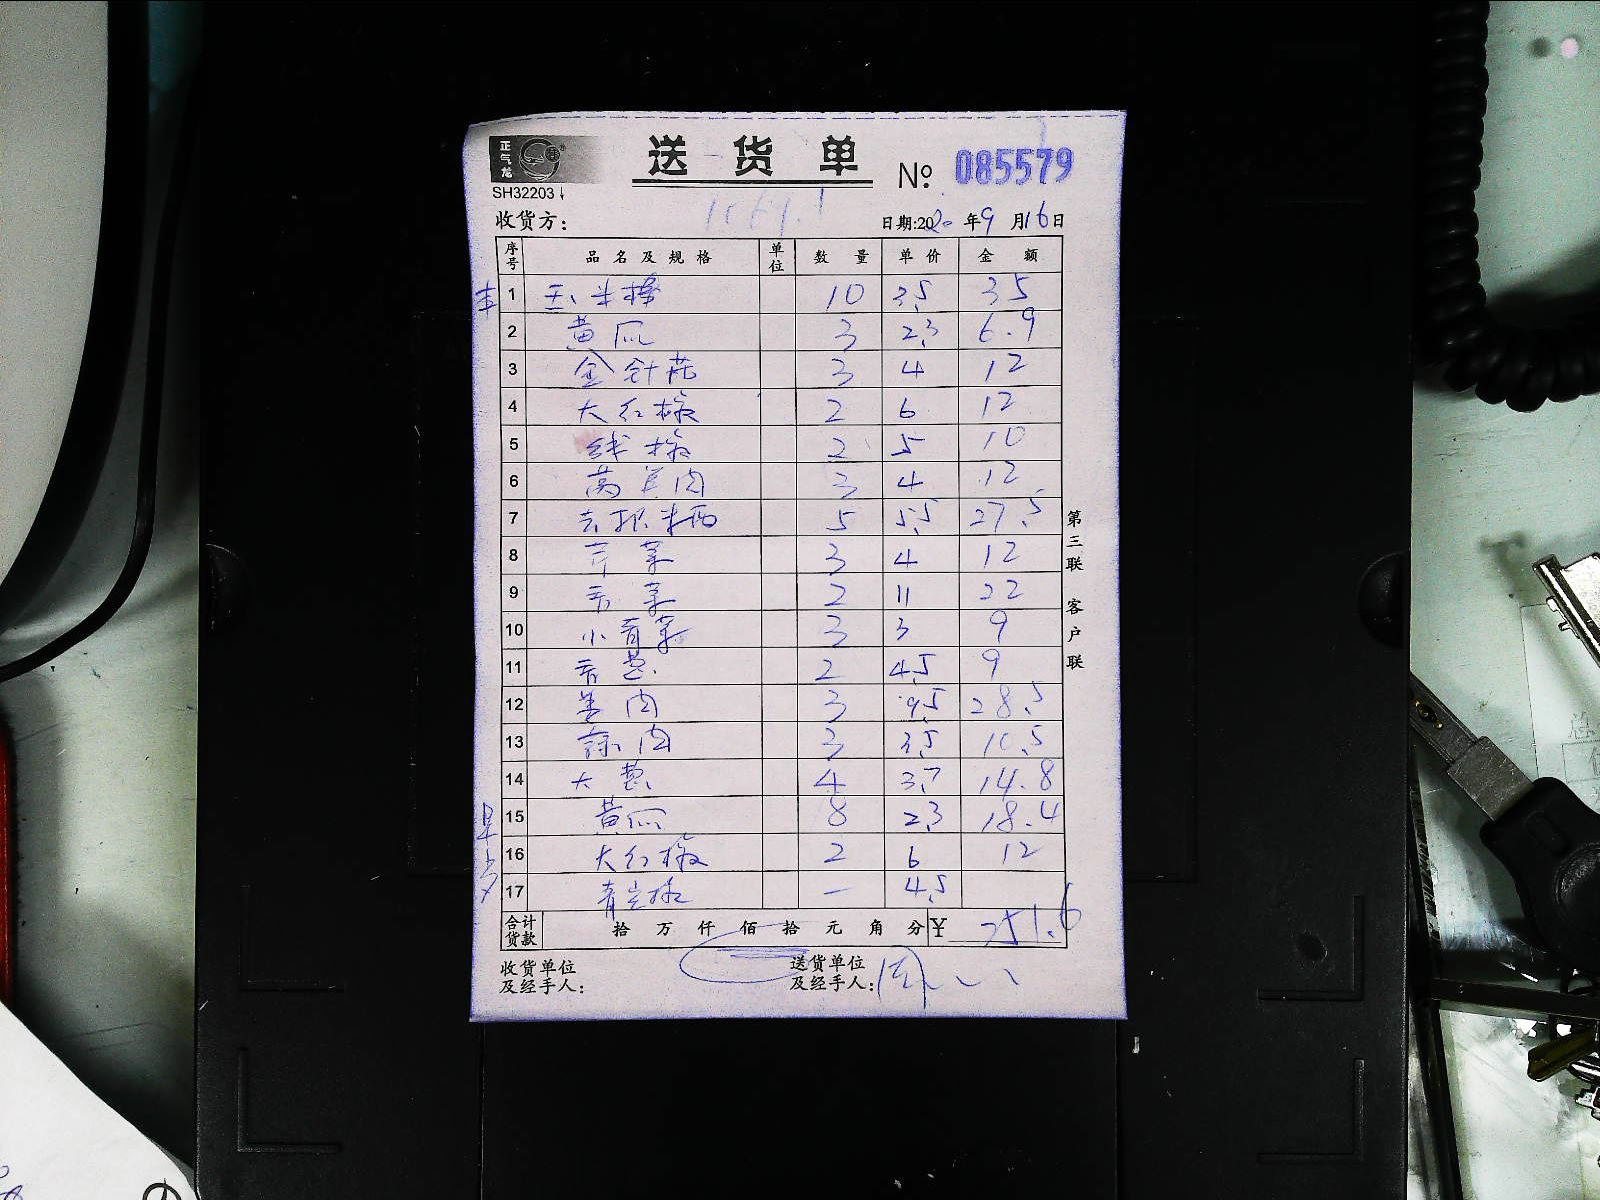 正气龙
送货单
№ 085579
SH32203
收货方：
日期:2020年9月16日
序号 品名及规格 单位 数量 单价 金额
1 玉米棒 10 3.5 35
2 黄瓜 3 2.3 6.9
3 金针菇 3 4 12
4 大红椒 2 6 12
5 线椒 2 5 10
6 莴笋肉 3 4 12
7 5 5.5 27.5
8 芹菜 3 4 12
9 香菜 2 11 22
10 小青菜 3 3 9
11 香葱 2 4.5 9
12 姜肉 3 9.5 28.5
13 蒜肉 3 3.5 10.5
14 大葱 4 3.7 14.8
15 黄瓜 8 2.3 18.4
16 大红椒 2 6 12
17 青尖椒 一 4.5
合计货款 拾 万 仟 佰 拾 元 角 分 ¥ 251.6
收货单位及经手人：
送货单位及经手人：
第三联 客户联